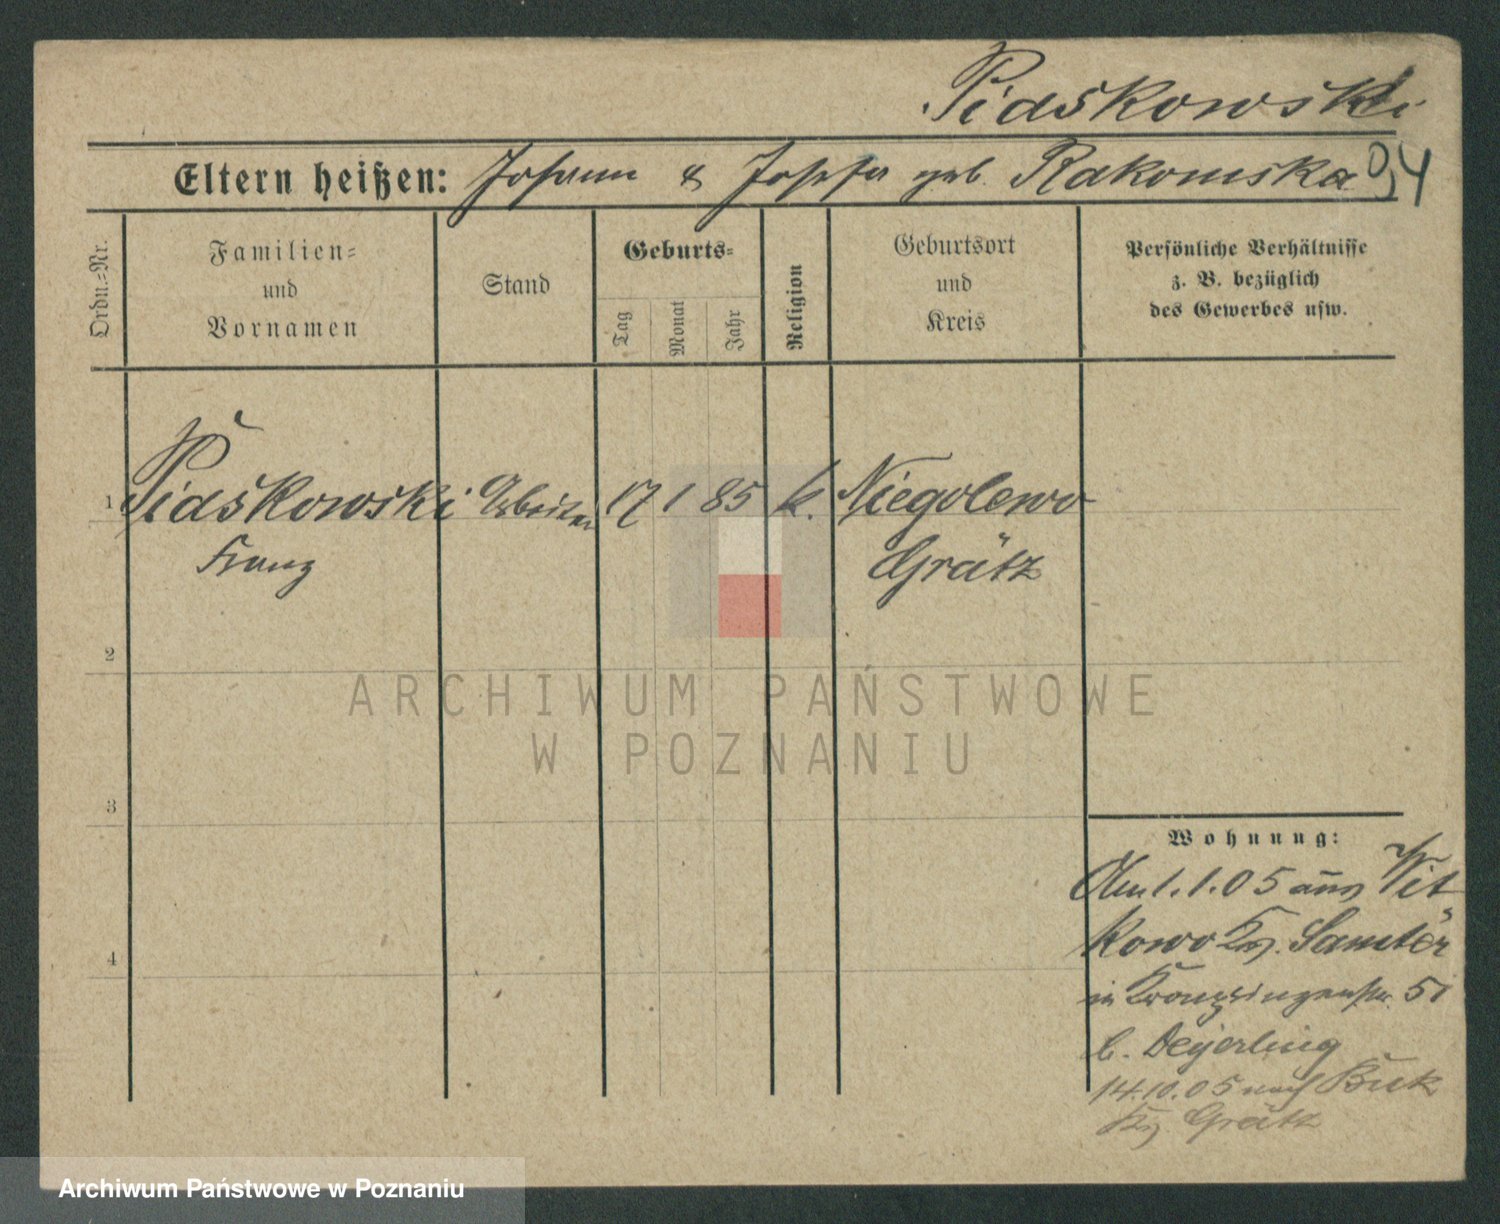 Piaskowski
Eltern heißen: Johann & Josefa geb. Rakowska
94
Ordn.-Nr.
Familien-
und
Vornamen
Stand
Geburts-
Tag
Monat
Jahr
Religion
Geburtsort
und
Kreis
Persönliche Verhältnisse
z. B. bezüglich
des Gewerbes usw.
1 Piaskowski Arbeiter 17 1 85 k. Niegolewo
Franz Grätz
2
ARCHIWUM PAŃSTWOWE
W POZNANIU
3
Wohnung:
Am 1.1.05 aus Wit
kowo Krs. Samter
in Kronprinzenstr. 51
b. Deyerling
4
14.10.05 nach Buk
Krs. Grätz
Archiwum Państwowe w Poznaniu